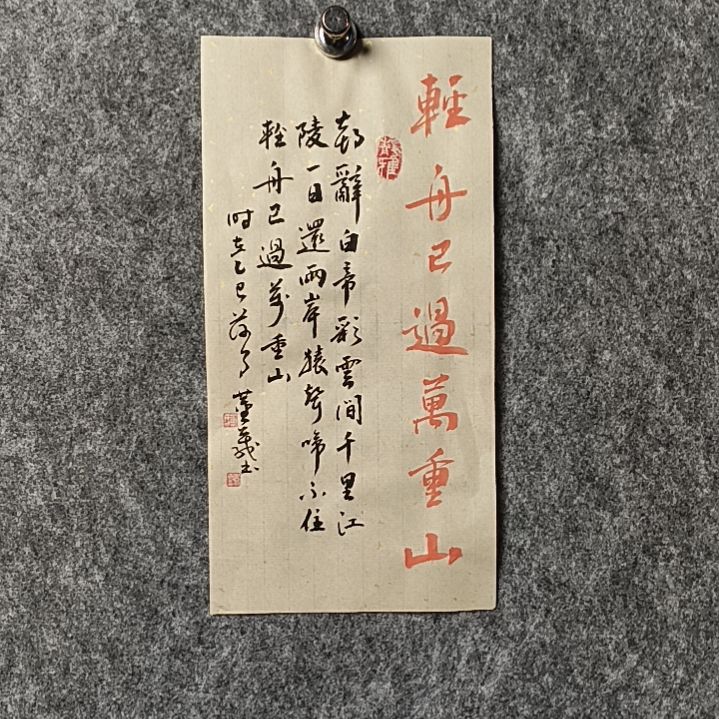 輕舟已過萬重山
朝辭白帝彩雲間千里江
陵一日還兩岸猿聲啼不住
輕舟已過萬重山
時在乙巳荷月
書